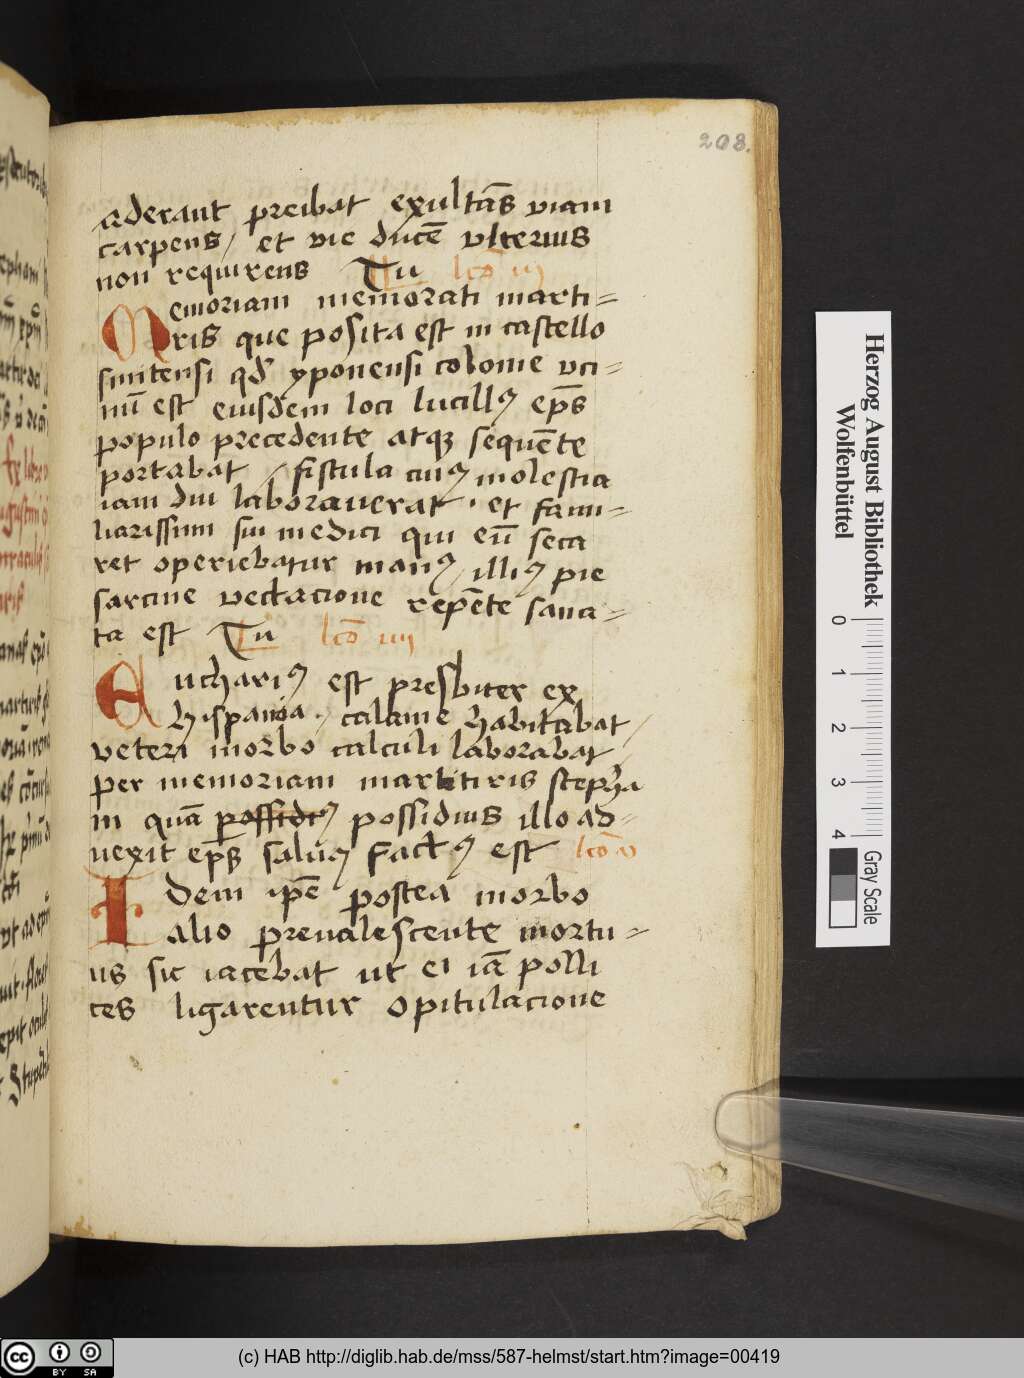 208.
aderant preibat exultās viam
carpens / et vie ducē vlterius
non requirens Tu lcō iij
Memoriam memorati marti=
ris que posita est in castello
sinitensi qd' yponensi colonie vci=
nū est eiusdem loci lucillꝰ ep̄s
populo precedente atqꝫ sequēte
portabat / fistula cuiꝰ molestia
iam diu laborauerat · et fami=
liarissimi sui medici qui eū seca
ret operiebatur manꝰ / illiꝰ pie
sarcine vectacione repēte sana=
ta est Tu lcō iiij
Euchariꝰ est presbiter ex
hispania · calame habitabat /
veteri morbo calculi laborabat
per memoriam martitiris stepha
ni quā possidiꝰ possidius illo ad=
uexit ep̄s saluꝰ factꝰ est lcō v
Idem ip̄e postea morbo
alio preualescente mortu=
us sic iacebat ut ei iā polli
ces ligarentur opitulacione
Herzog August Bibliothek
Wolfenbüttel
0 1 2 3 4
Gray Scale
cc BY SA
(c) HAB http://diglib.hab.de/mss/587-helmst/start.htm?image=00419